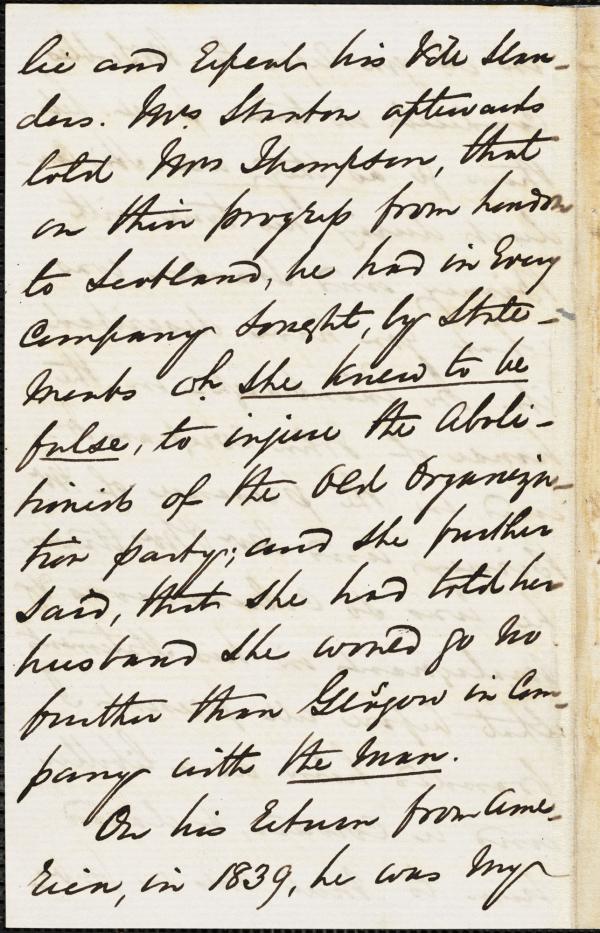 lie and repeat his vile slan-
ders. Mrs Stanton afterwards
told Mrs Thompson, that
on their progress from London
to Scotland, he had in every
company sought, by state-
ments wh. she knew to be
false, to injure the Aboli-
tionists of the Old Organiza-
tion party; and she further
said, that she had told her
husband she would go no
further than Glasgow in com-
pany with the man.
On his return from Ame-
rica, in 1839, he was my